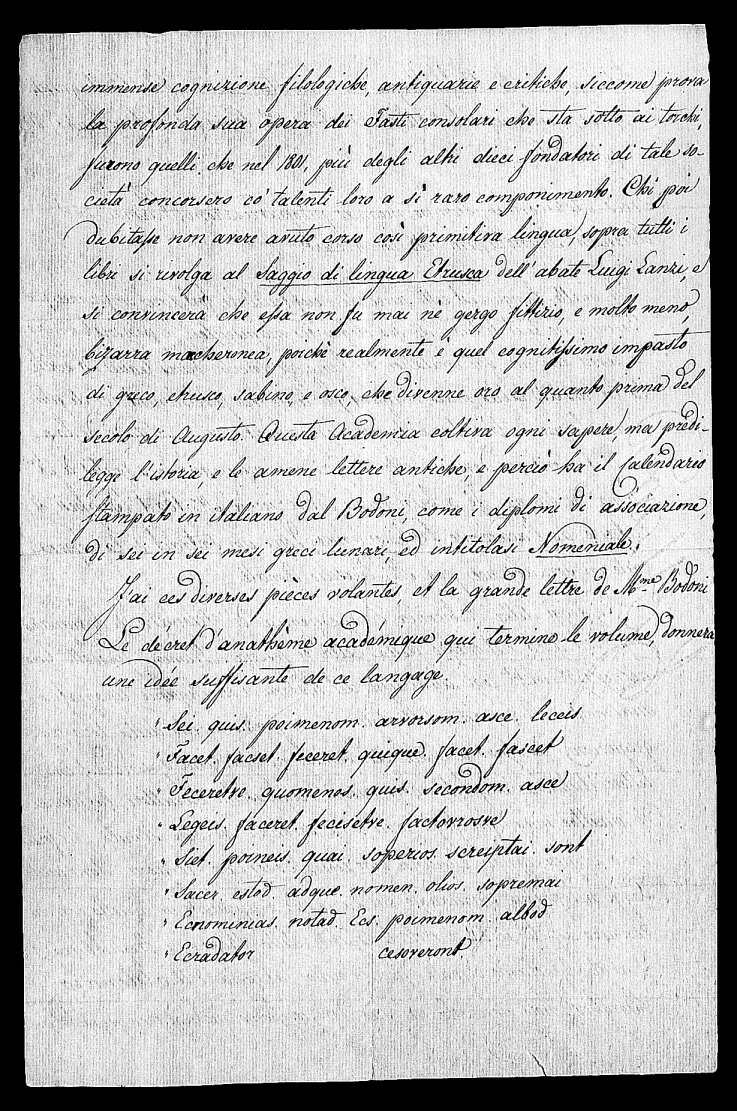 immense cognizione filologiche, antiquarie e critiche, siccome prova
la profonda sua opera dei Fasti consolari che sta sotto ai torchi,
furono quelli che nel 1801, più degli altri dieci fondatori di tale so-
cietà concorsero co' talenti loro a sì raro componimento. Chi poi
dubitasse non avere avuto corso così primitiva lingua, sopra tutti i
libri si rivolga al Saggio di lingua Etrusca dell' abate Luigi Lanzi, e
si convincerà che essa non fu mai nè gergo fittizio, e molto meno,
bizarra maccheronea, poichè realmente è quel cognitissimo impasto
di greco, etrusco, sabino, e osco, che divenne oro al quanto prima del
secolo di Augusto. Questa Academia coltiva ogni sapere, ma predi-
legge l'istoria, e le amene lettere antiche, e perciò ha il Calendario
stampato in italiano dal Bodoni, come i diplomi di associazione,
di sei in sei mesi greci lunari, ed intitolasi Nomeniale.
J'ai ces diverses pièces volantes, et la grande lettre de Mme Bodoni
Le décret d'anathème académique qui termine le volume, donnera
une idée suffisante de ce langage.
" Sei. quis. poimenom. arvorsom. asce. leceis
" Facet. facset. feceret. quique. facet. fascet
" Feceretve. quomenos. quis. secondom. asce
" Legeis. faceret. fecisetve. factovrosve
" Siet. poineis. quai. soperios. screiptai. sont
" Sacer. estod. adque. nomen. olios. sopremai
" Ecnominias. notad. Ecs. poimenom. albod
" Ecradator cesoveront.